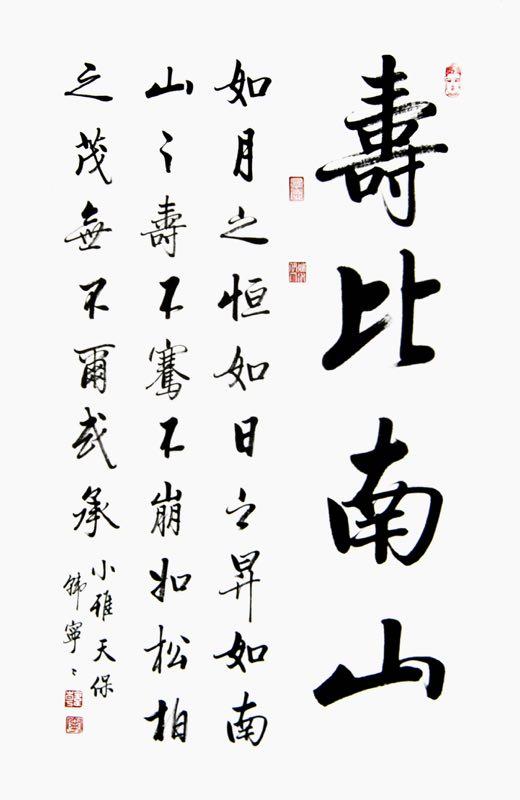 壽比南山
如月之恒如日之昇如南
山之壽不騫不崩如松柏
之茂無不爾或承
小雅天保
韓寧〻